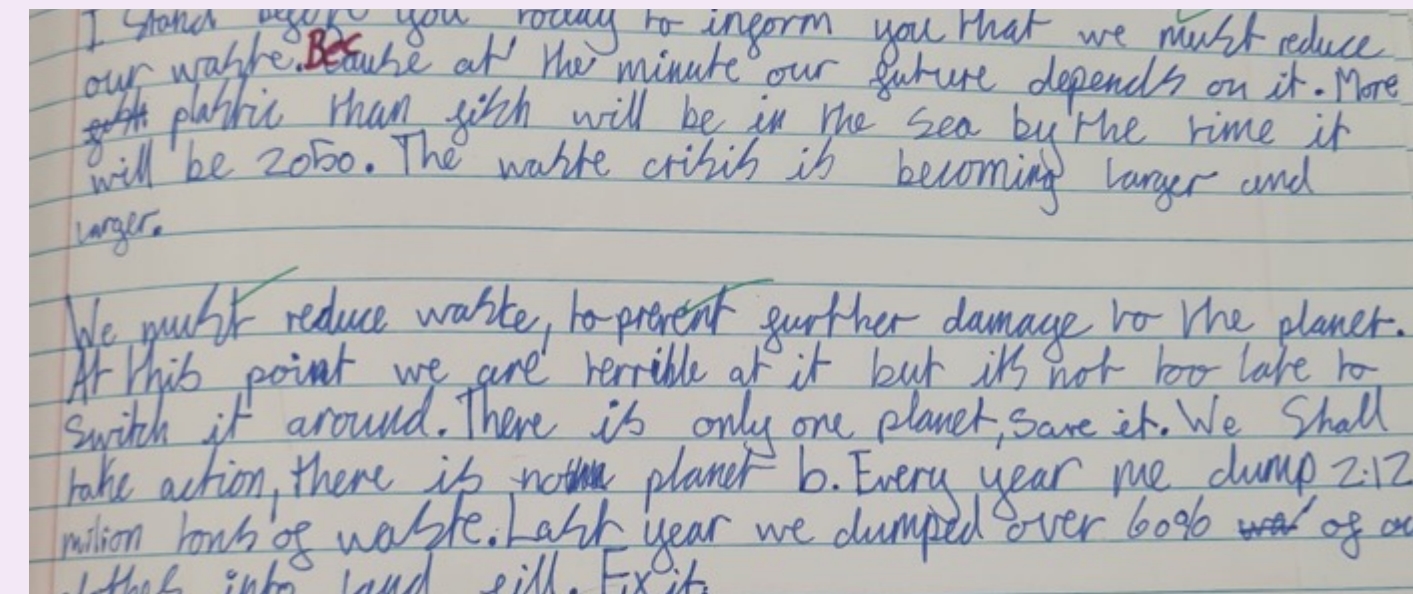 I stand before you today to inform you that we must reduce
our waste. Because at the minute our future depends on it. More
plastic than fish will be in the sea by the time it
will be 2050. The waste crisis is becoming larger and
larger.
We must reduce waste, to prevent further damage to the planet.
At this point we are terrible at it but its not too late to
switch it around. There is only one planet, save it. We shall
take action, there is no planet b. Every year we dump 2.12
milion tons of waste. Last year we dumped over 60% of
into land fill. Fix it.